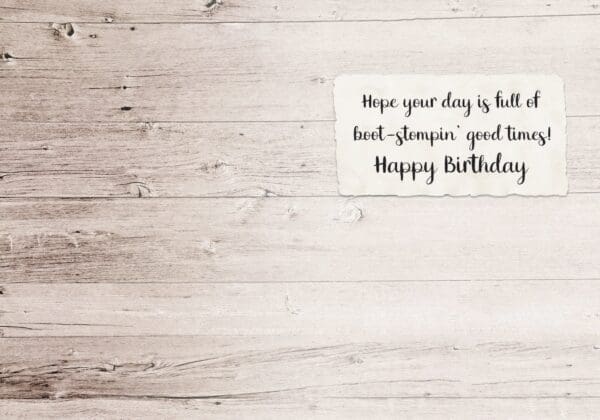 Hope your day is full of
boot-stompin' good times!
Happy Birthday